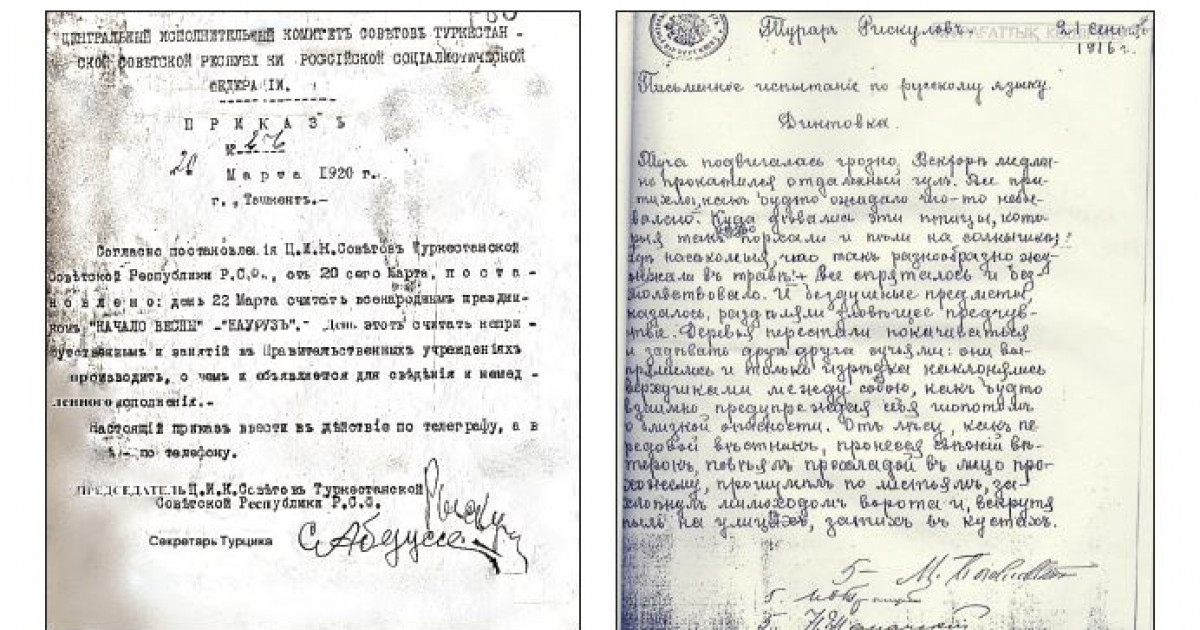 ЦЕНТРАЛЬНЫЙ ИСПОЛНИТЕЛЬНЫЙ КОМИТЕТЪ СОВѢТОВЪ ТУРКЕСТАН -
СКОЙ СОВѢТСКОЙ РЕСПУБЛ КИ РОССІЙСКОЙ СОЦІАЛИСТИЧЕСКОЙ
ФЕДЕРА ІИ.
П Р И К А З Ъ
№
20 Марта 1920 г..
г., Ташкентъ.-
Согласно постановленія Ц.И.К.Совѣтовъ Туркестанской
Совѣтской Республики Р.С.Ф., отъ 20 сего Марта, п о с т а -
н о в л е н о: день 22 Марта считать всенароднымъ праздни-
комъ "НАЧАЛО ВЕСНЫ" -"НАУРУЗЪ".- День этотъ считать непри -
сутственнымъ и занятій въ Правительственныхъ учрежденіяхъ
производить, о чемъ и объявляется для свѣдѣнія и немед -
леннаго исполненія.-
Настоящій приказъ ввести въ дѣйствіе по телеграфу, а в
по телефону.
ПРЕДСЕДАТЕЛЬ Ц.И.К.Совѣтовъ Туркестанской
Совѣтской Республики Р.С.Ф.
Секретарь Турцика
Тураръ Рискуловъ.
21 сентяб
1916 г.
Письменное испытаніе по русскому языку.
Диктовка.
Туча подвигалась грозно. Вскорѣ медлен-
но прокатился отдаленный гулъ. Все при-
тихло, какъ будто ожидало чего-то небы-
валаго. Куда дѣвались эти птицы, кото-
рыя такъ порхали и пѣли на солнышкѣ?
Гдѣ насѣкомыя, что такъ разнообразно жуж-
жжали въ травѣ? Все спряталось и без
молвствовало. И бездушные предметы,
казалось, раздѣляли зловѣщее предчув-
ствіе. Деревья перестали покачиваться
и задѣвать другъ друга сучьями: они вы-
прямились и только изрѣдка наклонялись
верхушками между собою, какъ будто
взаимно предупреждая себя шопотомъ
о близкой опасности. Отъ лѣсу, какъ пе
редовой вѣстникъ, пронесся свѣжій вѣ-
терокъ, повѣялъ прохладой въ лицо про-
хожему, прошумѣлъ по листьямъ, за-
хлопнулъ мимоходомъ ворота и, вскрутя
пыль на улицахъ, затихъ въ кустахъ.
5-
5
5-